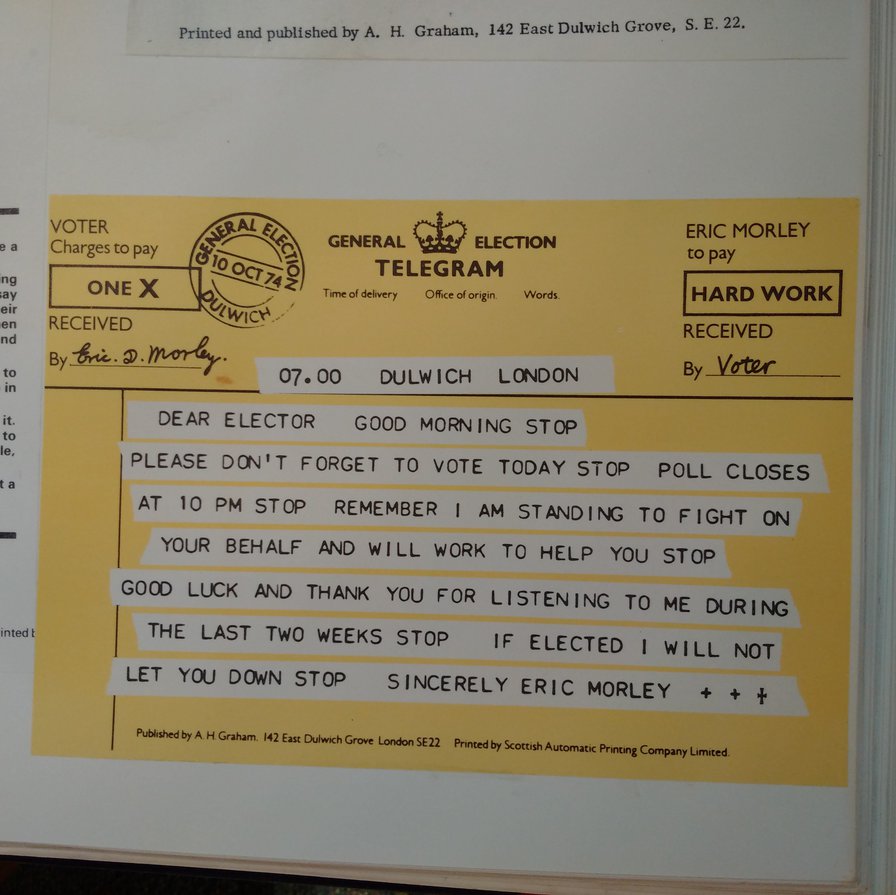 Printed and published by A. H. Graham, 142 East Dulwich Grove, S. E. 22.
VOTER
Charges to pay
ONE X
RECEIVED
By Eric. D. Morley.
GENERAL ELECTION
10 OCT 74
DULWICH
GENERAL ELECTION
TELEGRAM
Time of delivery Office of origin. Words.
ERIC MORLEY
to pay
HARD WORK
RECEIVED
By Voter
07.00 DULWICH LONDON
DEAR ELECTOR GOOD MORNING STOP
PLEASE DON'T FORGET TO VOTE TODAY STOP POLL CLOSES
AT 10 PM STOP REMEMBER I AM STANDING TO FIGHT ON
YOUR BEHALF AND WILL WORK TO HELP YOU STOP
GOOD LUCK AND THANK YOU FOR LISTENING TO ME DURING
THE LAST TWO WEEKS STOP IF ELECTED I WILL NOT
LET YOU DOWN STOP SINCERELY ERIC MORLEY + + ‡
Published by A. H. Graham. 142 East Dulwich Grove London SE22 Printed by Scottish Automatic Printing Company Limited.